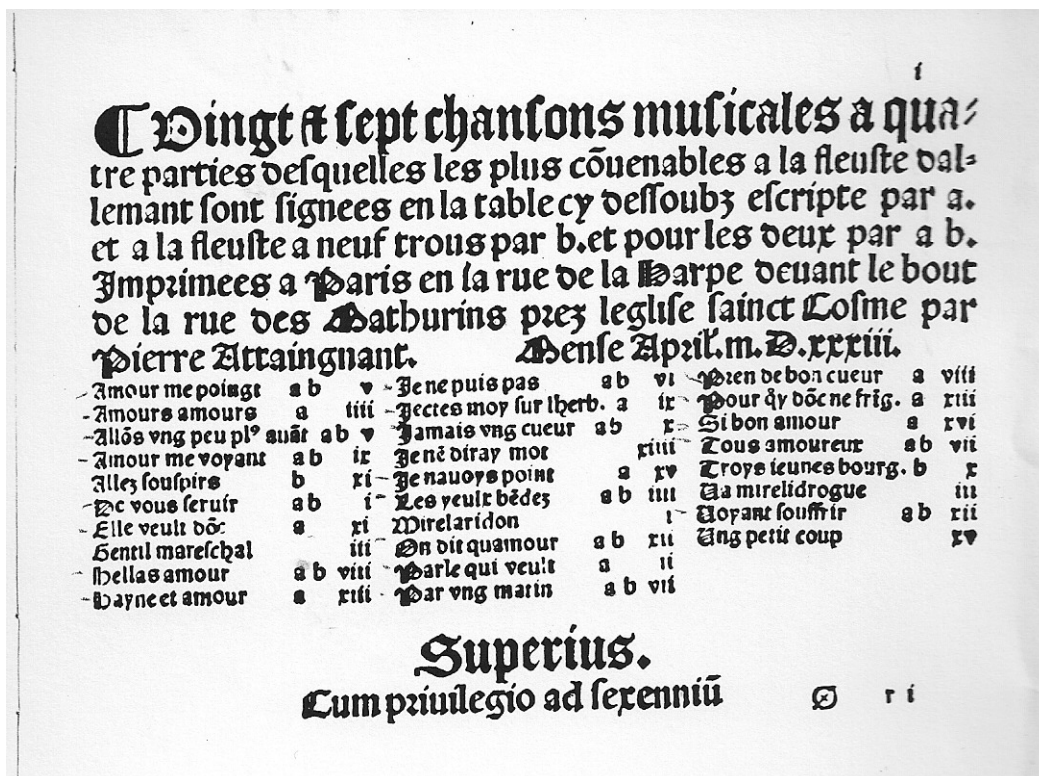 i
Vingt et sept chansons musicales a qua-
tre parties desquelles les plus cõuenables a la fleuste dal-
lemant sont signees en la table cy dessoubz escripte par a.
et a la fleuste a neuf trous par b. et pour les deux par a b.
Imprimees a Paris en la rue de la Harpe deuant le bout
de la rue des Mathurins prez leglise sainct Cosme par
Pierre Attaingnant. Mense Apríl. m. D. xxxiii.
Amour me poingt a b v
Amours amours a iiii
Allõs vng peu plꝰ auãt a b v
Amour me voyant a b ix
Allez souspirs b xi
De vous seruir a b i
Elle veult dõc a xi
Gentil mareschal iii
Hellas amour a b viii
Hayne et amour a xiii
Je ne puis pas a b vi
Jectes moy sur lherb. a ix
Jamais vng cueur a b x
Je nẽ diray mot xiiii
Je nauoys point a xv
Les yeulx bẽdez a b iiii
Mirelaridon i
On dit quamour a b xii
Parle qui veult a ii
Par vng matin a b vii
Pren de bon cueur a viii
Pour qͥy dõc ne frig. a xiii
Si bon amour a xvi
Tous amoureux a b vii
Troys ieunes bourg. b x
Va mirelidrogue iii
Voyant souffrir a b xii
Ung petit coup xv
Superius.
Cum priuilegio ad sexenniũ r i